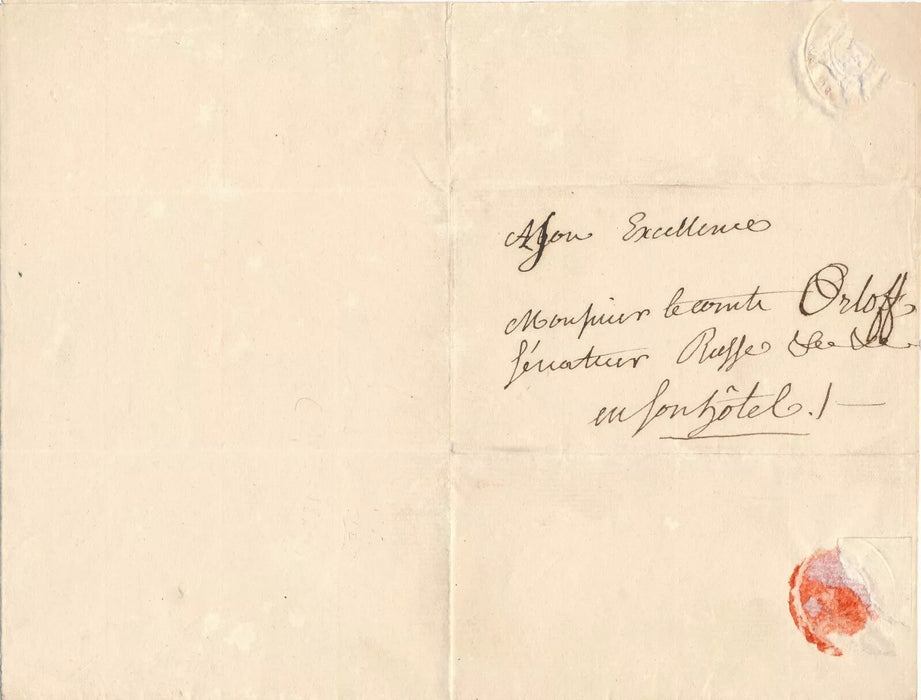 A son Excellence
Monsieur le comte Orloff
sénateur Russe &c &c
en son hôtel./—